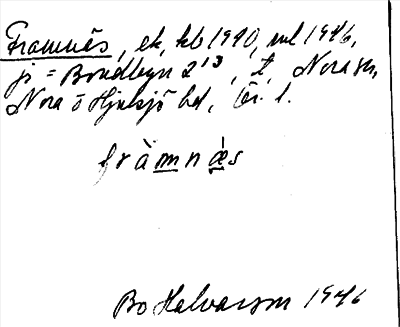 Framnäs, ek, kb 1940, ml 1946,
js = Bondbyn 2¹³, t, Nora sn,
Nora o Hjulsjö bd, Ör. l.
främnæ̀s
Bo Halvarson 1946